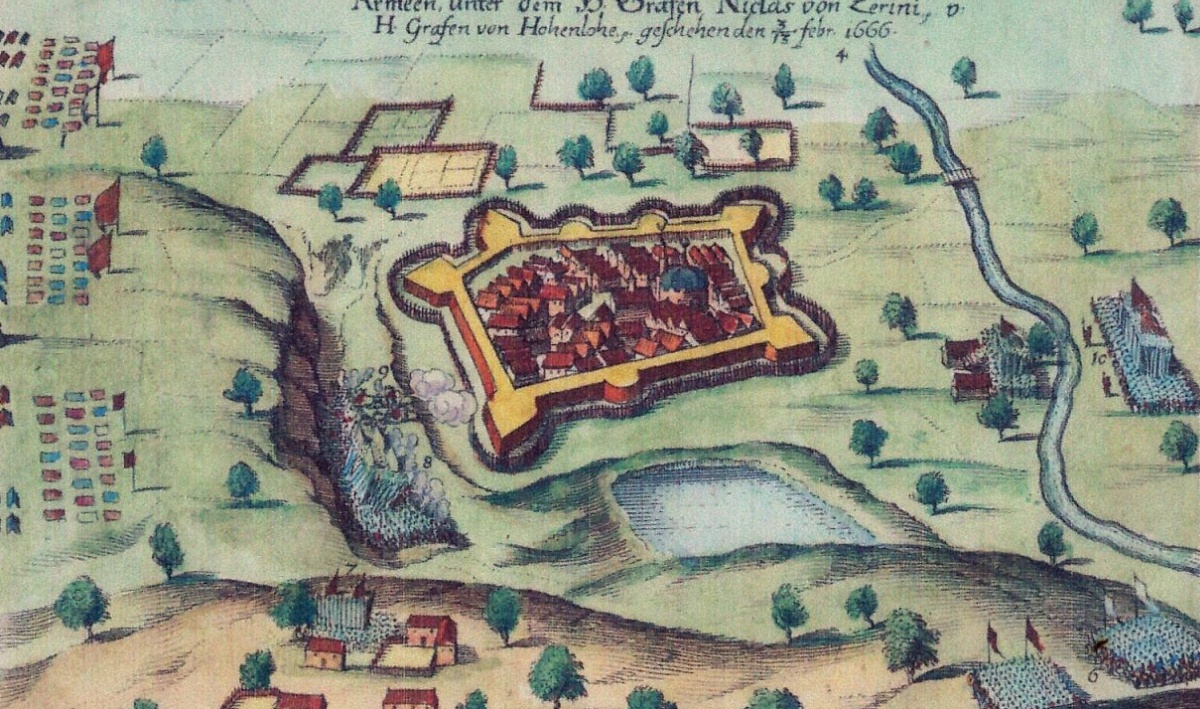 Armeen, unter dem H. Grafen Niclas von Zerini, v.
H Grafen von Hohenlohe, geschehen den 3/13 febr. 1666.
4
10
9
8
7
6